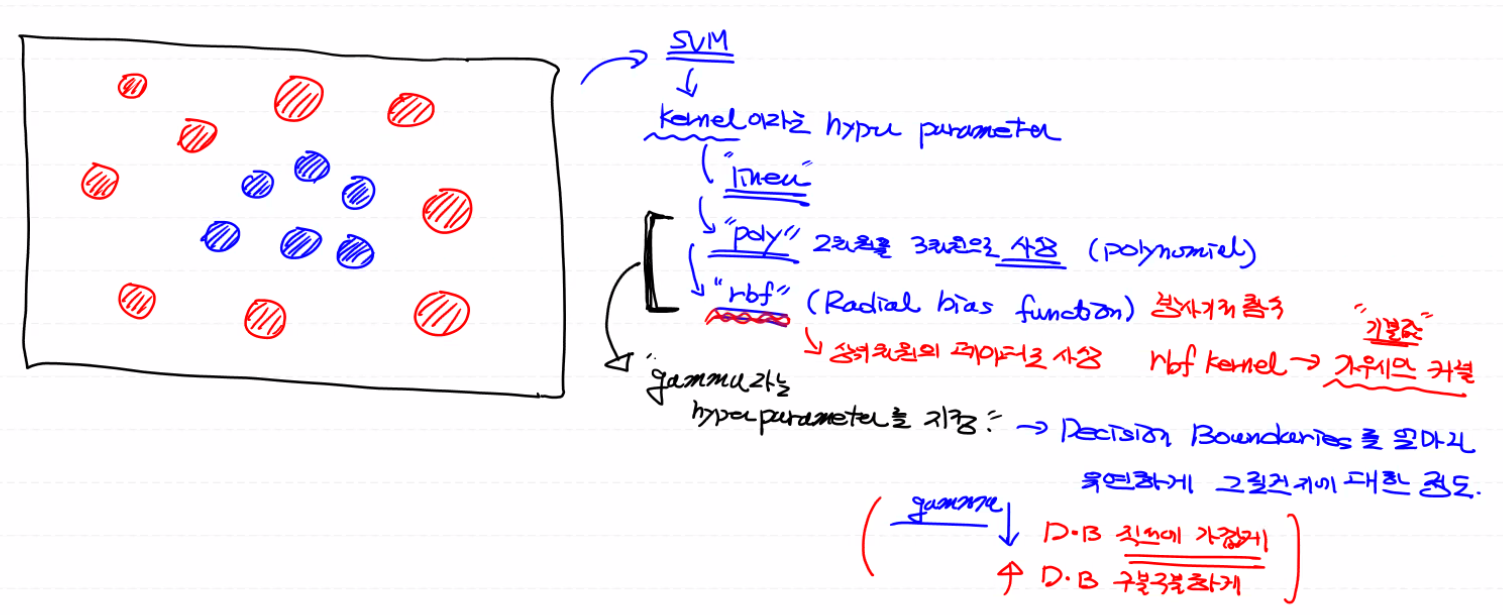 SVM
kernel이라는 hyper parameter
"linear"
"poly" 2차원를 3차원으로 사상 (polynomial)
"rbf" (Radial bias function) 방사기저함수
"기본값"
→ 상위차원의 데이터로 사상 rbf kernel → 가우시안 커널
"gamma라는
hyperparameter를 지정" → Decision Boundaries를 얼마나
유연하게 그릴건지에 대한 정도.
gamma ↓ D.B 직선에 가깝게
↑ D.B 구불구불하게